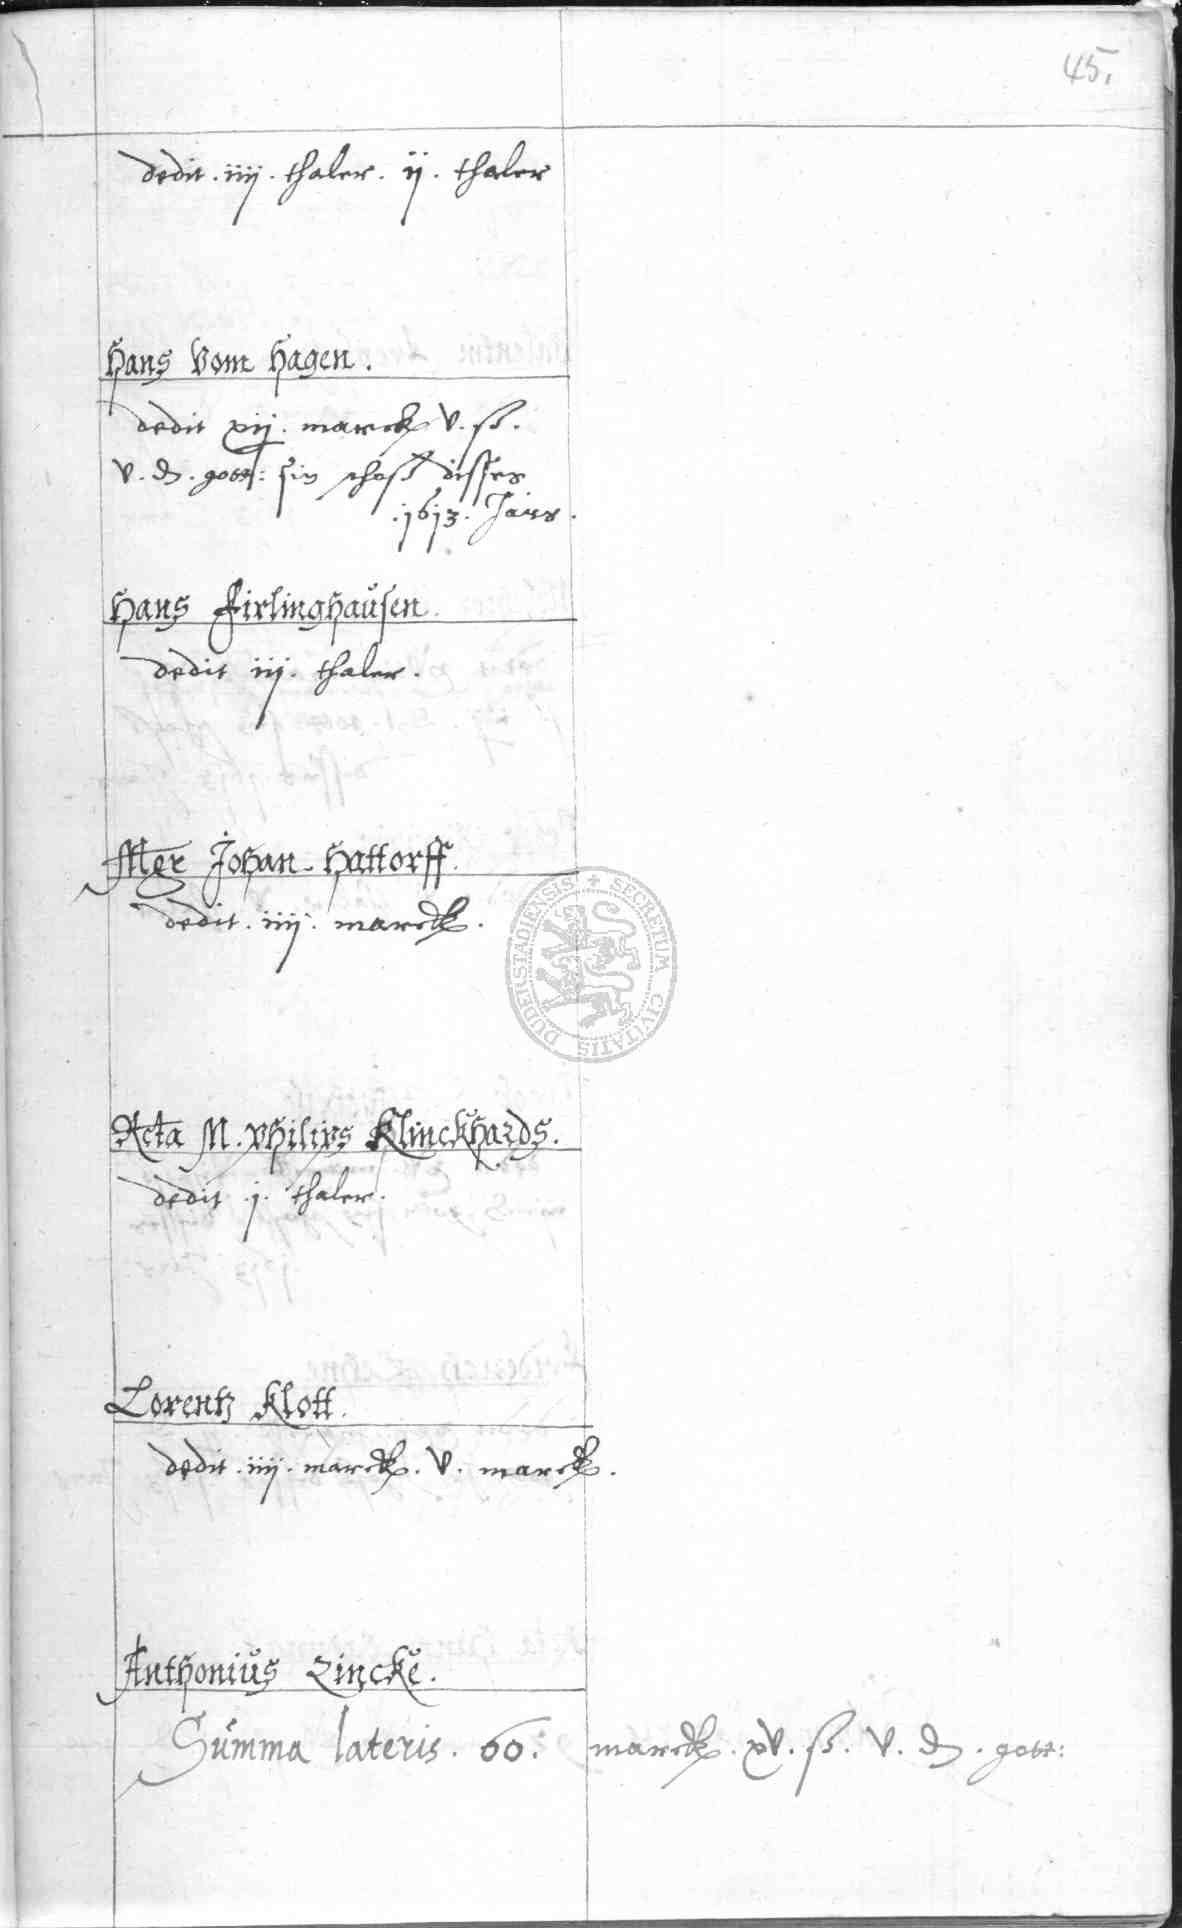 45.
dedit . iiij . thaler . ij . thaler
Hans Vom Hagen .
dedit xij . marck V . ß .
V . d . gott : sin schoß disses
. 1613 . Jars .
Hans Firlinghaüsen .
dedit iij . thaler .
Mgr Johan Hattorff .
dedit . iiij . marck .
Acta M . Philips Klinckhards .
dedit . j . thaler .
Lorentz Klott .
dedit . iiij . marck . V . marck .
Anthoniüs Zincke .
Summa lateris . 60 . marck . xV . ß . V . d . gott :
SECRETUM CIVITATIS DUDERSTADIENSIS